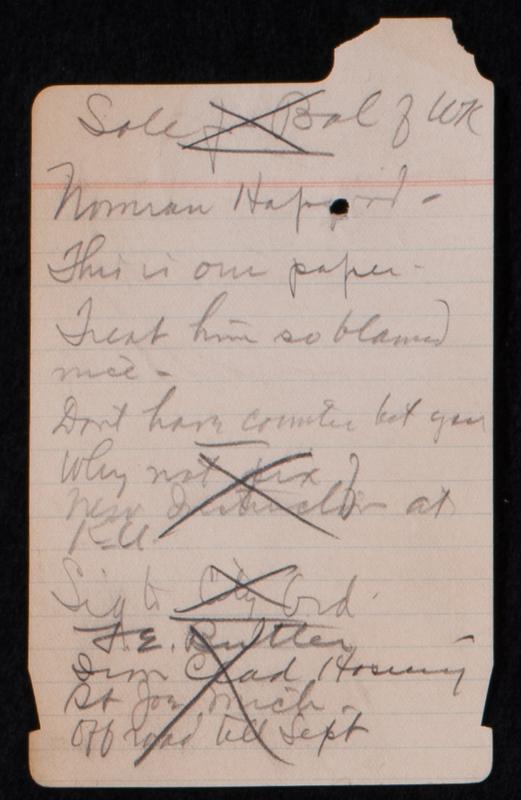 Sale f Bal of WK
Norman Hapgood -
This is our paper -
Treat him so blamed
nice -
Dont have counter bet you
Why not fix
New Instructor at
K.U.
Sig to City Ord.
F. E. Butler
Iron Clad Hosiery
St Joe Mich -
Off road till Sept